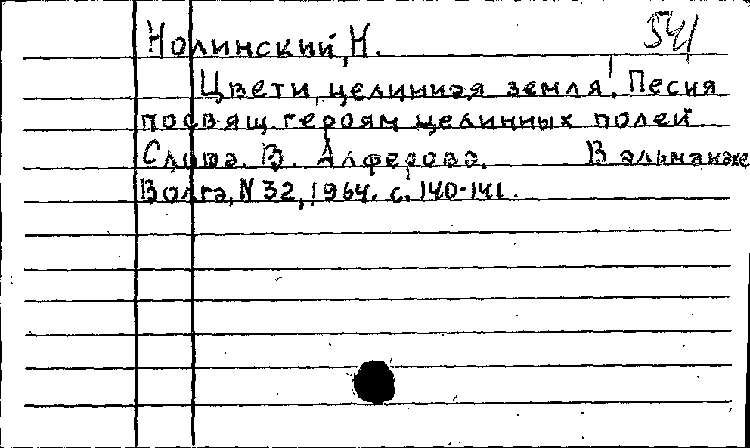 Нолинский, Н. 541
Цвети, целинная земля! Песня
посвящ. героям целинных полей.
Слова. В. Алферова. В альманахе
Волга, N 32, 1964. с. 140-141.